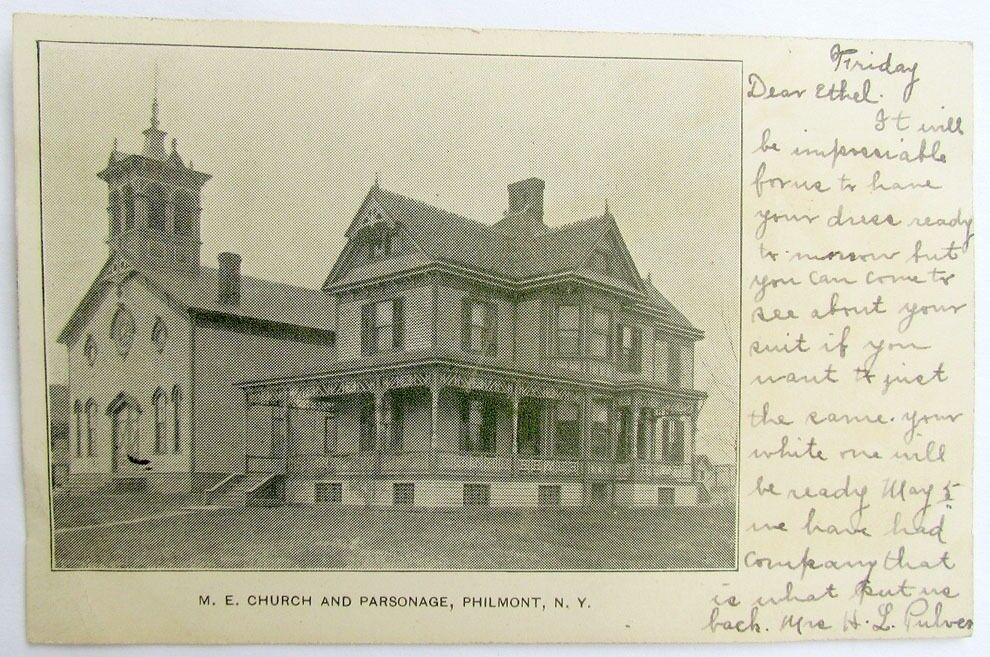 Friday
Dear Ethel.
It will
be impossiable
for us to have
your dress ready
to-morrow but
you can come to
see about your
suit if you
want to just
the same. your
white one will
be ready May 5
we have had
company that
is what put us
back. Mrs H. L. Pulver
M. E. CHURCH AND PARSONAGE, PHILMONT, N. Y.